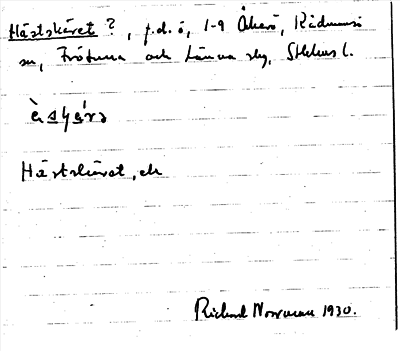 Hästskäret ?, p.d. ö, 1-9 Åkerö, Rådmansö
sn, Frötuna och Länna skg, Sthlms l.
Hästskäret, ck
Richard Norrman 1930.